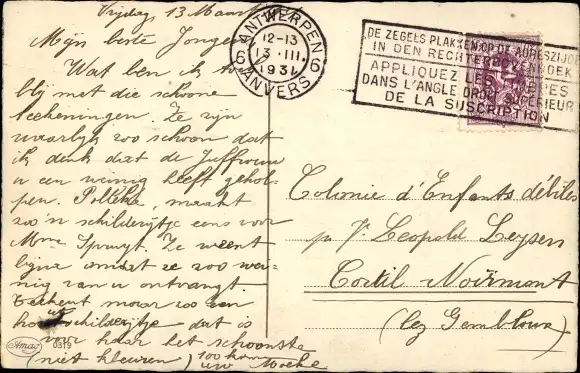 Vrijdag, 13 Maart
Mijn beste Jongen
Wat ben ik toch
blij met die schoone
teekeningen. Ze zijn
waarlijk zoo schoon dat
ik denk dat de Juffrouw
u een weinig heeft gehol-
pen. Polleke, maakt
zoo'n schilderijtje eens voor
Mme Spruyt. Ze weent
bijna omdat ze zoo wei-
nig van u ontvangt.
Teekent maar zoo een
schilderijtje dat is
voor haar het schoonste
(niet kleuren) 100 kussen
uw Moeke
Amag 0319
ANTWERPEN
12-13
13-III.
1931
6 6
ANVERS
DE ZEGELS PLAKKEN OP DE ADRESZIJDE
IN DEN RECHTERBOVENHOEK
APPLIQUEZ LES TIMBRES
DANS L'ANGLE DROIT SUPERIEUR
DE LA SUSCRIPTION
Colonie d'Enfants débiles
pr Leopold Leysen
Cortil Noirmont
(lez Gembloux)